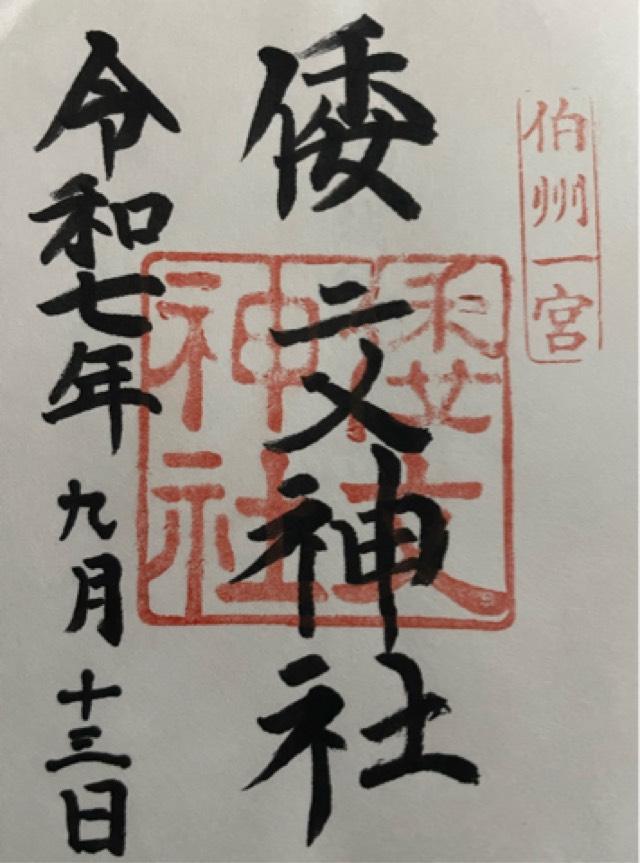 伯州一宮
倭文神社
倭文神社
令和七年九月十三日